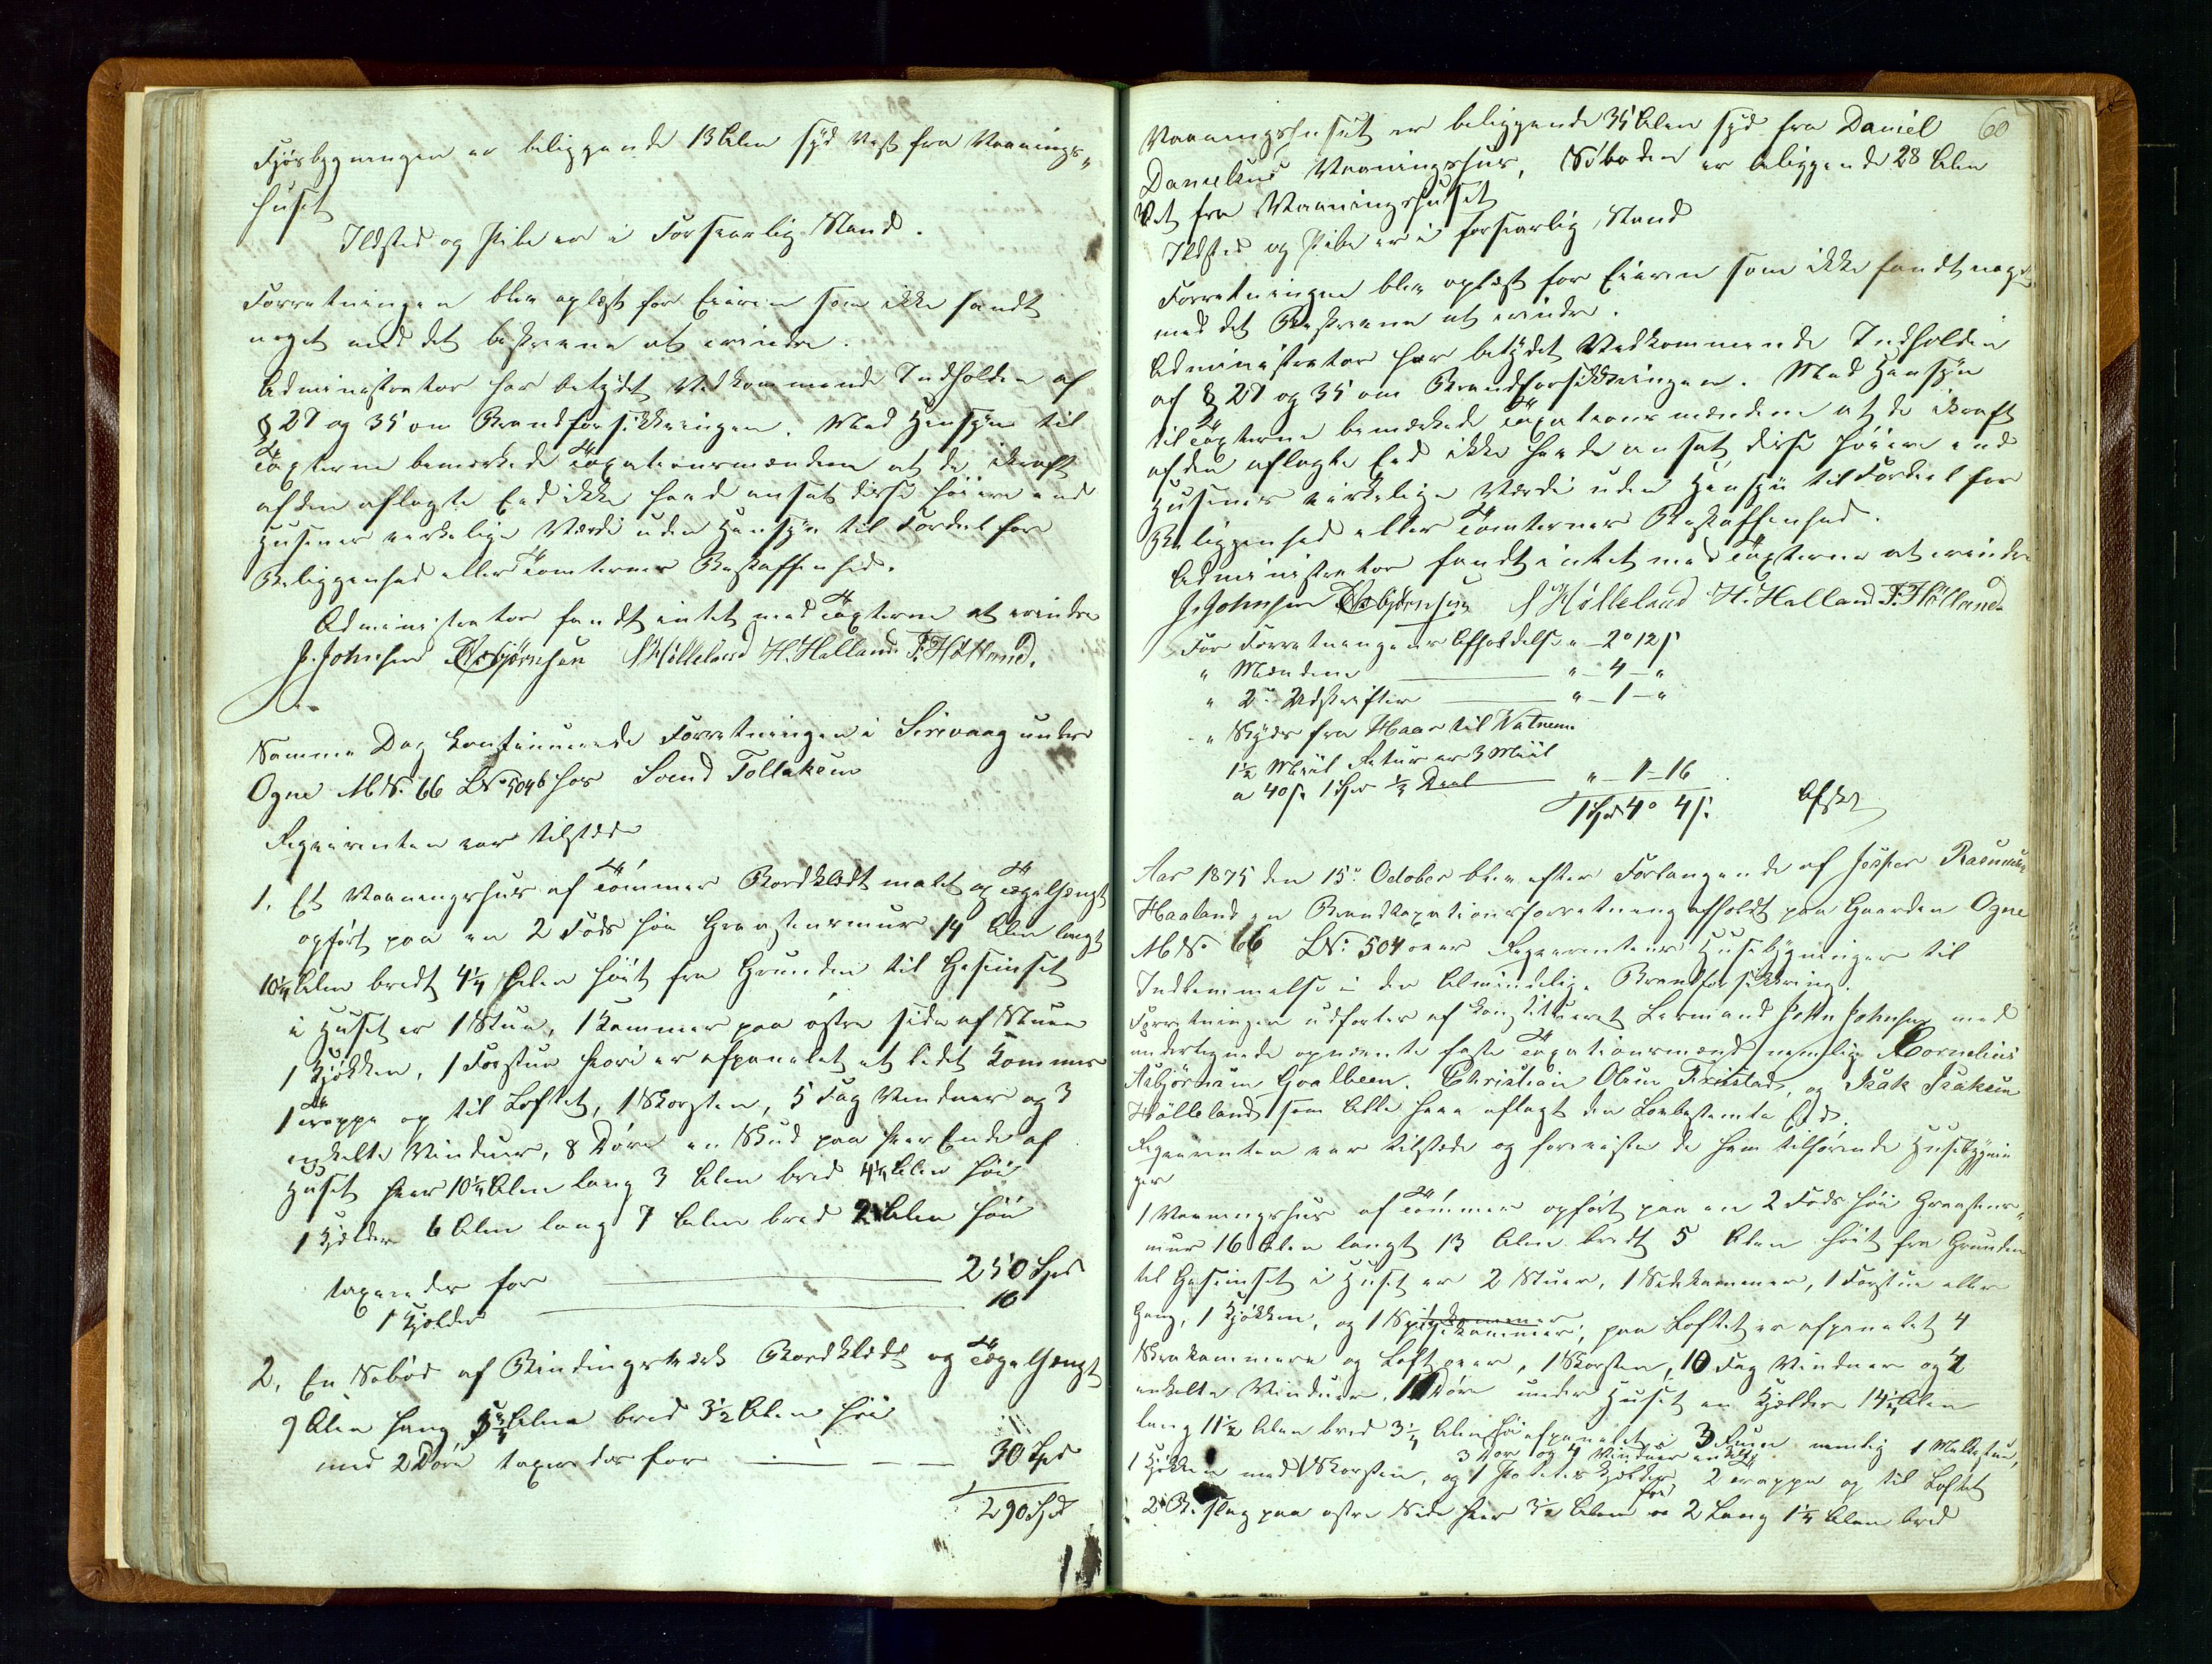 Fjøsbygningen er beliggende 13 Alen syd Vest fra Vaanings-
huset
Ildsted og Pibe er i Forsvarlig Stand.
Forretningen blev oplæst for Eieren som ikke fandt
noget med det beskrevne at erindre.
Administrator har betydet Vedkommende Indholden af
§ 27 og 35 om Brandforsikkringen. Med Hensyn til
Taxterne bemerkede Taxationsmændene at de ikraft
af den aflagte Eed ikke havde ansat disse høiere end
Husenes virkelige Værdi uden Hensyn til Fordeel for
Beliggenhed eller Tomternes Beskaffenhed.
Administrator fandt intet med Taxterne at erindre
J. Johnsen Asbjørnsen Hølleland H. Halland T. Hølland.
Samme Dag kontinuerede Forretningen i Sirevaag under
Ogne M.N. 66 LN. 504b hos Svend Tollaksen
Reqvirenten var tilstæde
1. Et Vaaningshus af Tømmer Bordklædt malet og Tægelhængt
opført paa en 2 Fods høi Graastensmuur 14 Alen langt
10¼ Alen bredt 4¼ Alen høit fra Grunden til Gesimset
i Huset er 1 Stue, 1 Kammer paa østre side af Stuen
1 Kjøkken, 1 Forstue hvori er afpanelet et lidet Kammer
1 Trappe op til Loftet, 1 Skorsten, 5 Fag Vinduer og 3
enkelte Vinduer, 8 Døre en Skud paa hver Ende af
Huset hver 10¼ Alen lang 3 Alen bred 4¼ Alen høi
1 Kjelder 6 Alen lang 7 Alen bred 2 Alen høi
taxeredes for 250 Spd
1 Kjelder 10
2. En Søbod af Bindingsverk Bordklædt og Tægelhængt
9 Alen lang 5¾ Alen bred 3½ Alen høi
med 2 Døre taxeredes for 30 Spd
290 Spd
60
Vaaningshuset er beliggende 35 Alen syd fra Daniel
Danielsens Vaaningshus, Søboden er beliggende 28 Alen
Vest fra Vaaningshuset
Ildsted og Pibe er i forsvarlig Stand
Forretningen blev oplæst for Eieren som ikke fandt noget
med det Beskrevne at erindre.
Administrator har betydet Vedkommende Indholden
af § 27 og 35 om Brandforsikkringen. Med Hensyn
til Taxterne bemerkede Taxationsmændene at de ikraft
af den aflagte Eed ikke havde ansat disse høiere end
Husenes virkelige Værdi uden Hensyn til Fordeel for
Beliggenhed eller Tomternes Beskaffenhed.
Administrator fandt intet med Taxterne at erindre
J. Johnsen Asbjørnsen Hølleland H. Halland T. Hølland
For Forretningens Afholdelse " – 2 " 12 s
" Mændene " – 4 – "
" 2de Udskrifter " – 1 – "
" Skyds fra Haar til Vatnem
1½ Miil Retur er 3 Miil
a 40 s. 1 Spd ½ Deel " – 1 – 16
1 Spd 4 " 4 s.
Aar 1875 den 15de October blev efter Forlangende af Jesper Rasmusen
Haaland en Brandtaxationsforretning afholdt paa Gaarden Ogne
M.N. 66 LN. 504 over Reqvirentens Husebygninger til
Indlemmelse i den Almindelige Brandforsikkring.
Forretningen udførtes af konstitueret Lensmand John Johnsen med
undertegnede opnævnte faste Taxationsmænd nemlig Cornelius
Asbjørnsen Hvalbeen, Christian Olsen Fristad, og Isak Isaksen
Hølleland som Alle have aflagt den Lovbestemte Eed.
Reqvirenten var tilstæde og foreviste de ham tilhørende Husebygnin
ger
1 Vaaningshus af Tømmer opført paa en 2 Fods høi Graastens-
mur 16 Alen langt 13 Alen bredt 5 Alen høit fra Grunden
til Gesimset i Huset er 2 Stuer, 1 Sidekammer, 1 Forstue eller
Gang, 1 Kjøkken, og 1 Spisekammer, paa Loftet er afpanelet 4
Skraakammere og Loft over, 1 Skorsten, 10 Fag Vinduer og 2
enkelte Vinduer, Døre under Huset en Kjelder 14½ Alen
lang 11½ Alen bred 3¼ Alen høi afpanelet i 3 Rum nemlig 1 Melkebu,
3 Dør og 4 Vinduer enkelt
1 Kjøkken med 1 Skorsten, og 1 Potetes Kjelder, 2 Trappe op til Loftet
høi
2 Bislag paa østre Side hver 3½ Alen 2 Lang 1¼ Alen bred